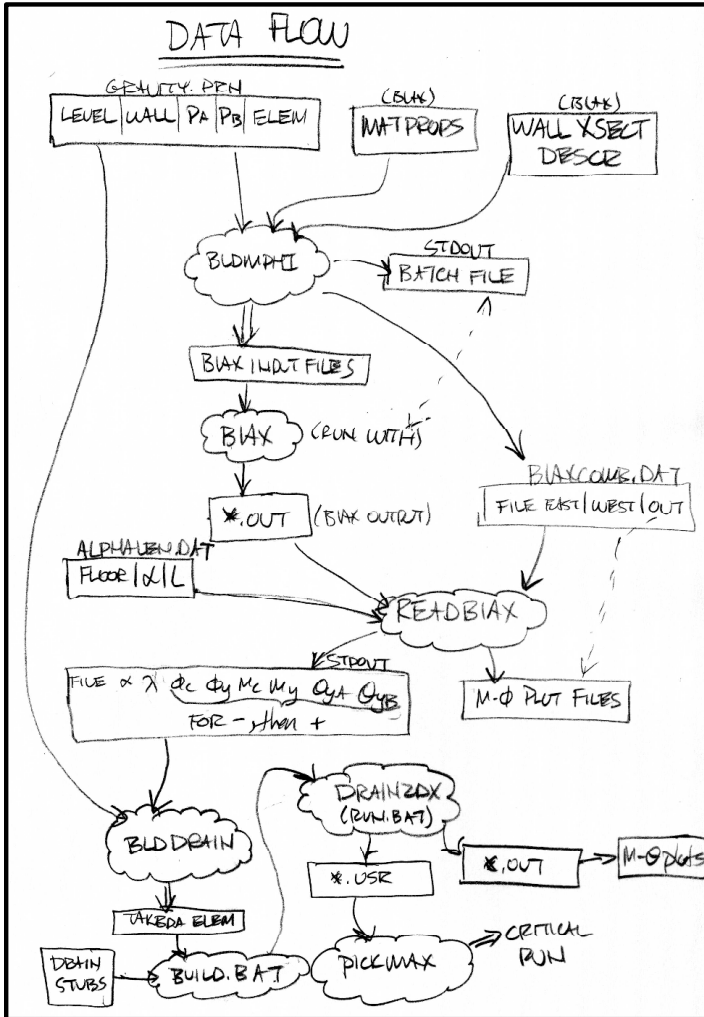 DATA FLOW
GRAVITY.PRN
LEVEL | WALL | PA | PB | ELEM
(BIAX)
MAT PROPS
(BIAX)
WALL XSECT
DESCR
BLDMPHI
STDOUT
BATCH FILE
BIAX INPUT FILES
BIAX
(RUN WITH)
BIAXCOMB.DAT
FILE EAST | WEST | OUT
*.OUT
(BIAX OUTPUT)
ALPHALEN.DAT
FLOOR | α | L
READBIAX
STDOUT
FILE α λ ϕc ϕy Mc My θyA θyB
FOR -, then +
M-ϕ PLOT FILES
DRAIN2DX
(RUN.BAT)
BLDDRAIN
*.USR
*.OUT
M-θ plots
TAKEDA ELEM
DRAIN
STUBS
BUILD.BAT
PICKMAX
CRITICAL
RUN